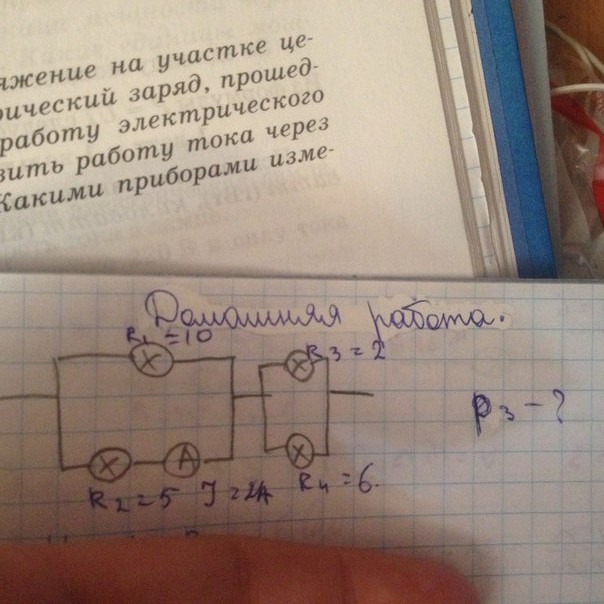 яжение на участке це-
рический заряд, прошед-
работу электрического
зить работу тока через
Какими приборами изме-
Домашняя работа.
R1 = 10
R3 = 2
P3 - ?
R2 = 5 J = 2A R4 = 6.